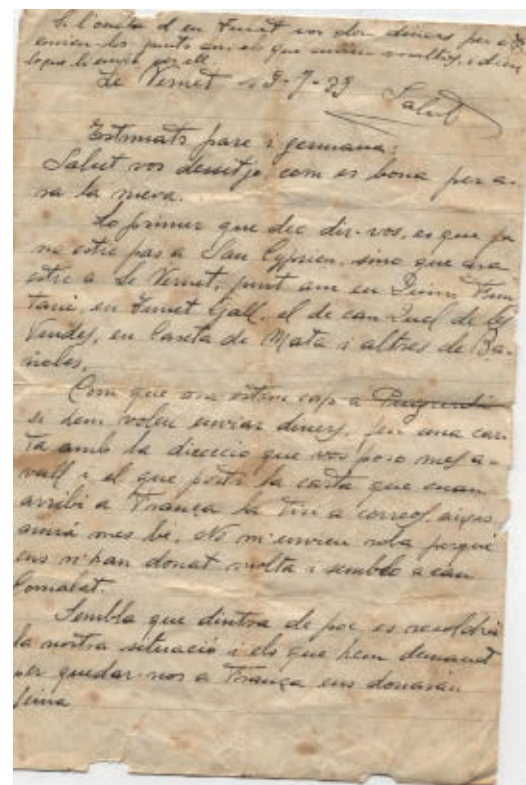 Si l'oncle d'en Fumet vos don diners per a
envien-los junto am els que
lo que li envio per ell.
Le Vernet 9-7-39 Salut
Estimats pare i germana:
Salut vos desitjo, com es bona per a-
ra la meva.
Lo primer que dec dir-vos, es que ja
no estic pas a San Cyprien, sino que ara
estic a Le Vernet, junt am en
en Fumet Gall, el de can de les
Vendes, en Caseta de Mata i altres de Ba-
ñoles.
Com que ara estem cap a
si hem voleu enviar diners, feu una car-
ta amb la direccio que vos poso mes a-
vall i el que porti la carta que cuan
arribi a França la tiri a correos, aixis
anirà mes bé. No m'envieu roba perque
ens n'han donat molta i semblo a can
Comalat.
Sembla que dintra de poc es resoldrà
la nostra situació i els que hem demanat
per quedar-nos a França ens donaràn
feina